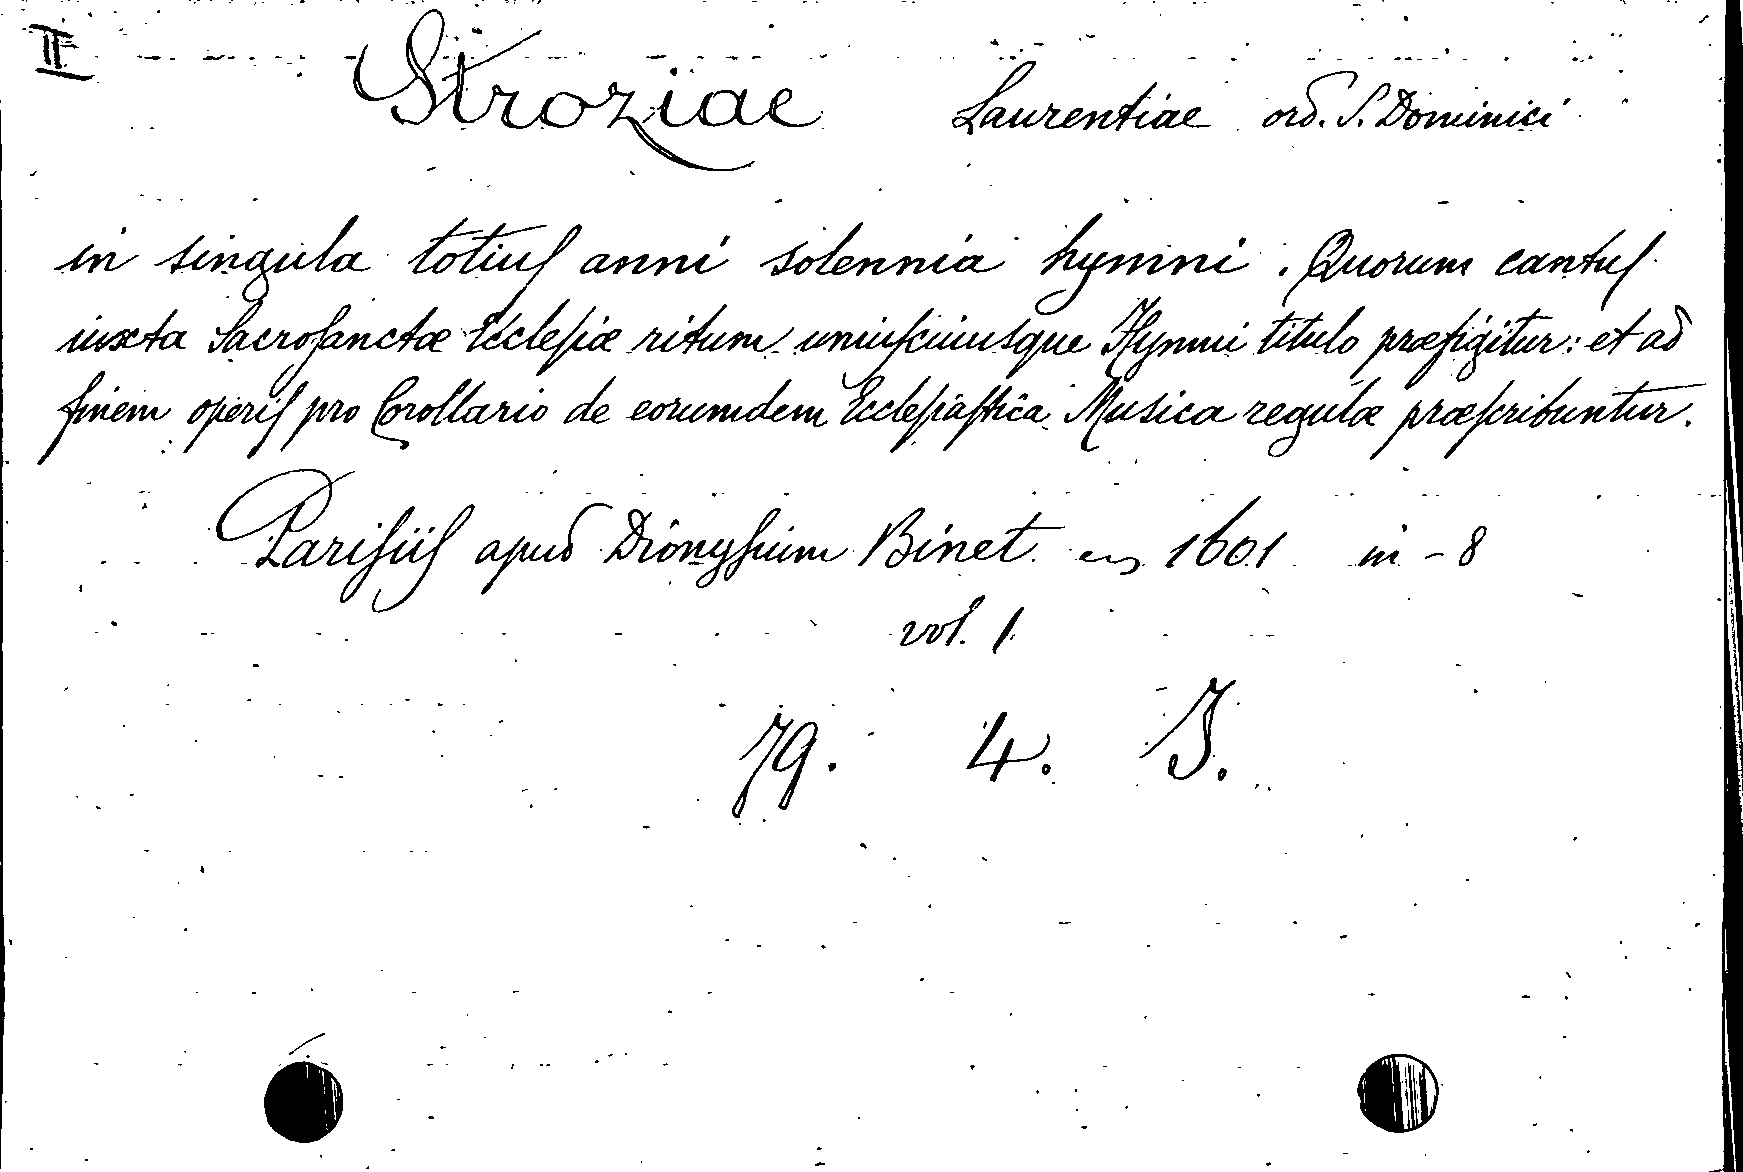 II
Stroziae Laurentiae ord. S. Dominici
in singula totiuſ anni solennia hymni. Quorum cantuſ
iuxta Sacroſanctæ Eccleſiæ ritum uniuſcuiusque Hymni titulo præfigitur: et ad
finem operiſ pro Corollario de eorumdem Eccleſiaſtica Musica regulæ præſcribuntur.
Pariſiiſ apud Dionyſium Binet en 1601 in-8
vol. 1
79. 4. J.